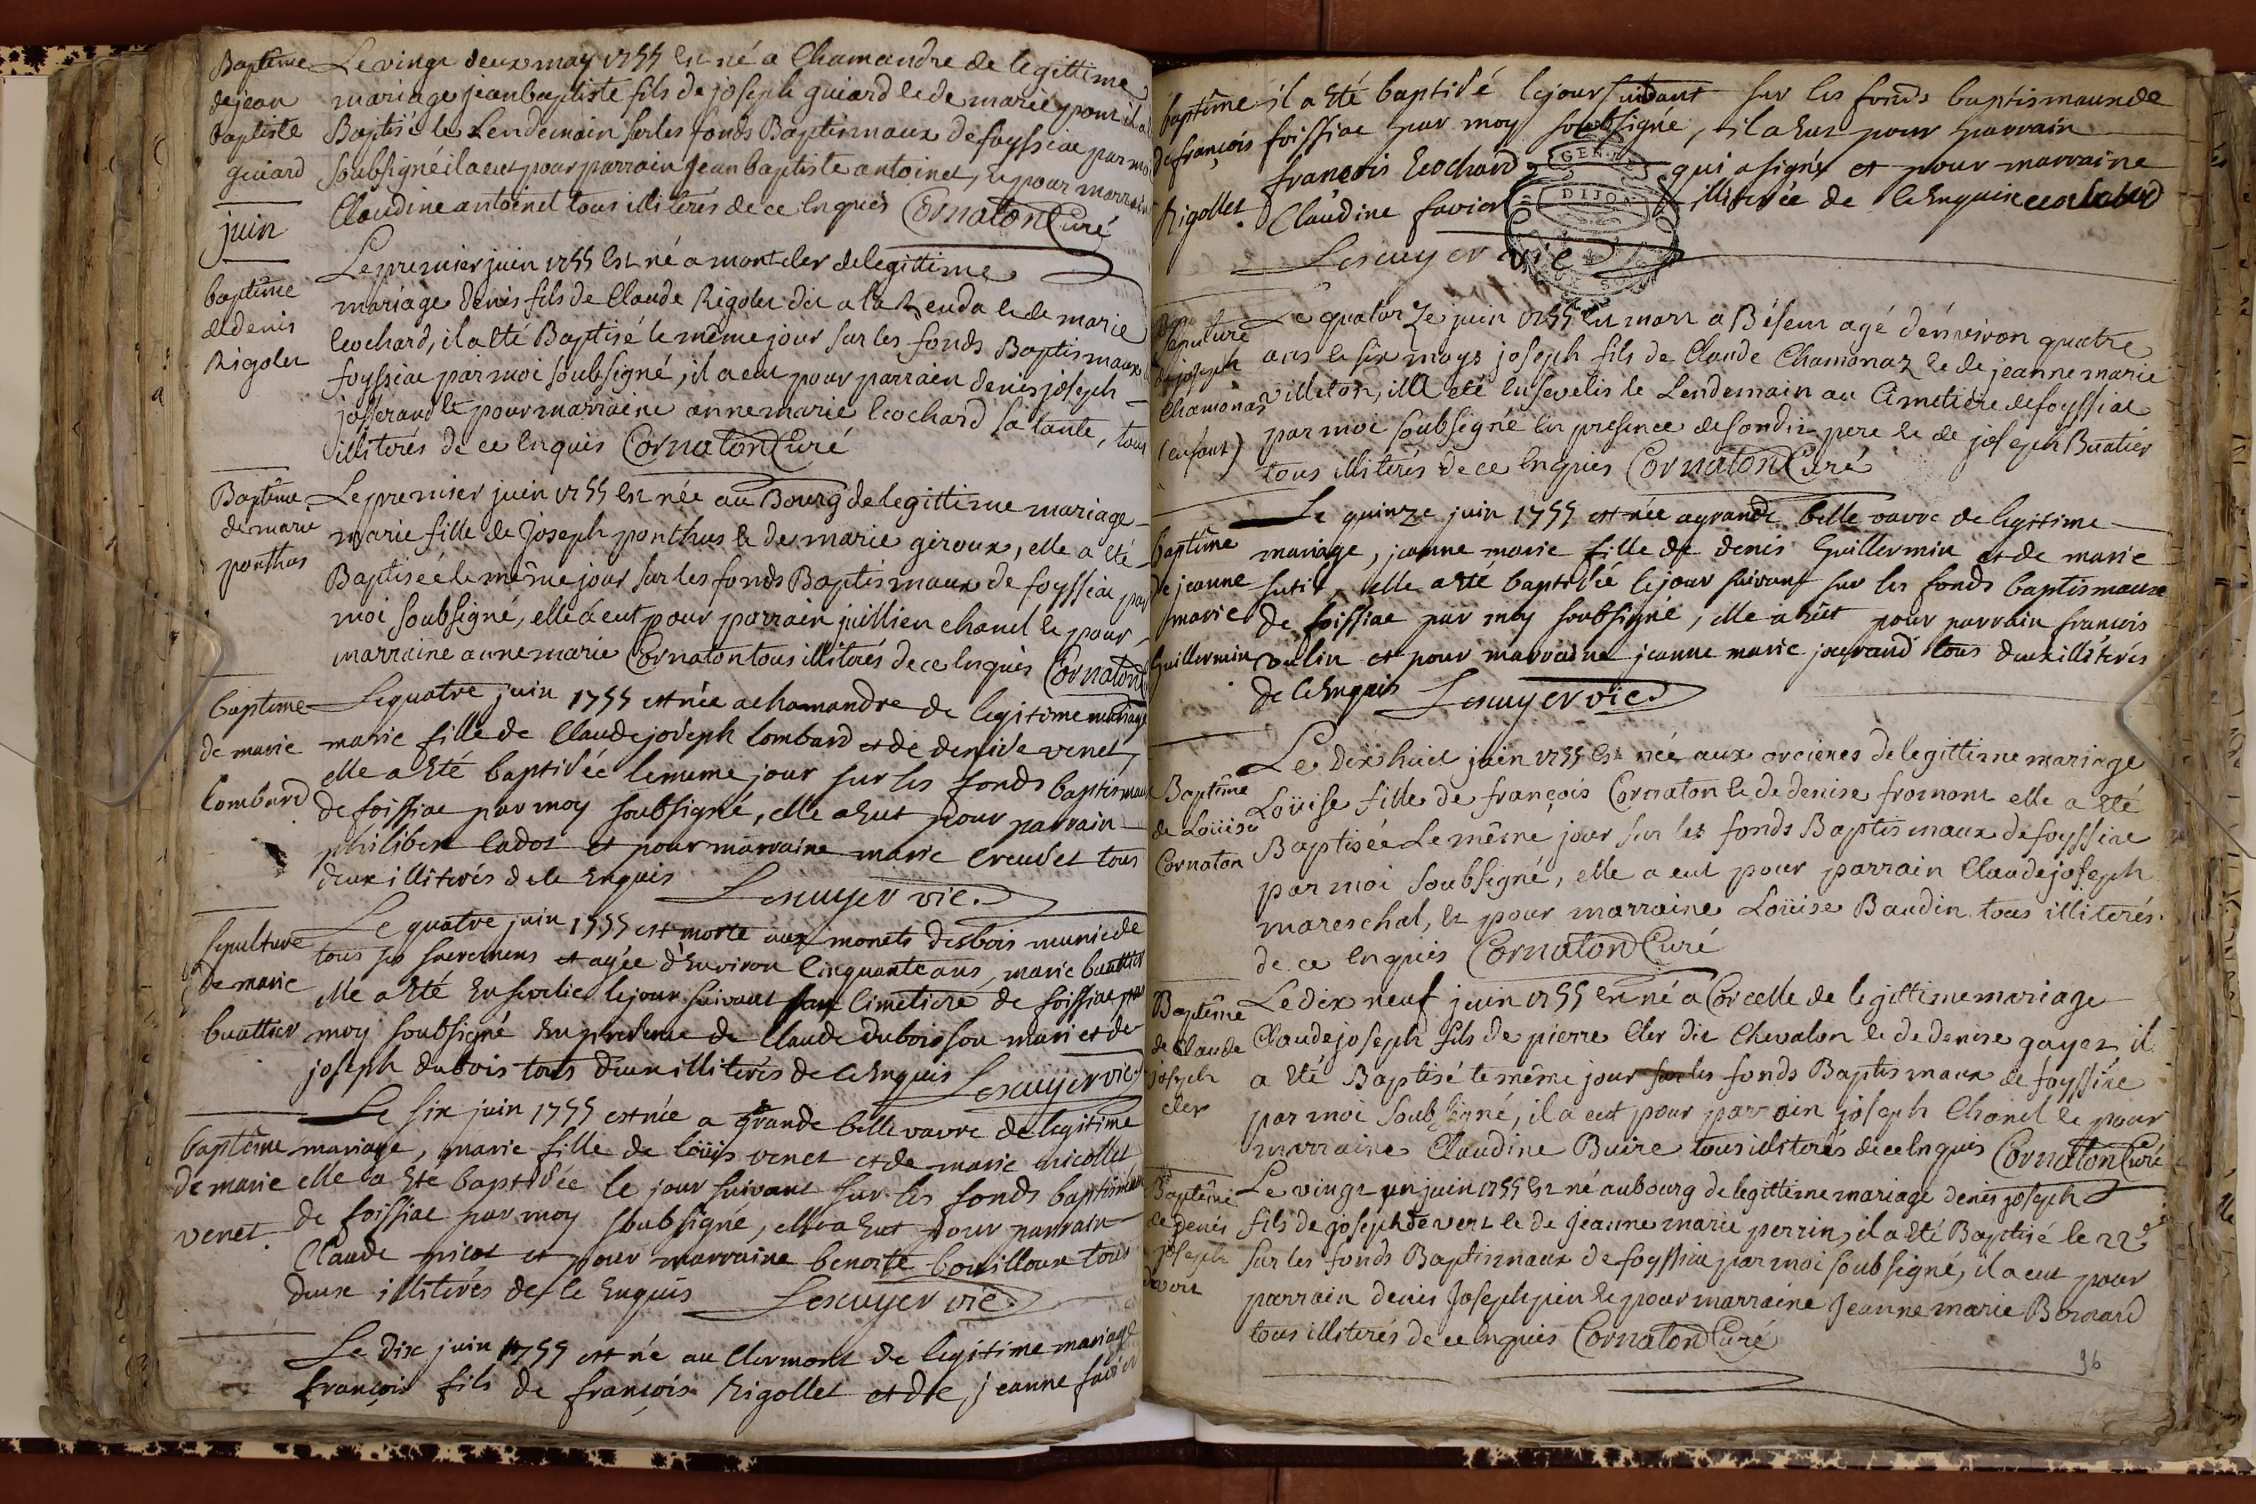 Baptême
de jean
baptiste
guiard
Le vingt deux may 1755 est né a Chamandre de legittime
mariage jean baptiste fils de joseph guiard et de marie ypont il a
Baptisé le Lendemain sur les fonds Baptismaux de foyssiac par moi
soubsigné il a eut pour parrain Jean baptiste antoinet, et pour marraine
Claudine antoinet tous illiterés de ce enquis Cornaton Curé
juin
baptême
de denis
Rigolet
Le premier juin 1755 est né a montcler de legittime
mariage denis fils de Claude Rigolet dit a la Renda et de marie
leochard, il a été Baptisé le même jour sur les fonds Baptismaux
foyssiac par moi soubsigné, il a eut pour parrain denis joseph
josserand et pour marraine anne marie leochard sa tante, tous
illiterés de ce enquis Cornaton Curé
Baptême
de marie
ponthus
Le premier juin 1755 est née au Bourg de legittime mariage
marie fille de Joseph ponthus et de marie giroux, elle a été
Baptisée le même jour sur les fonds Baptismaux de foyssiac par
moi soubsigné, elle a eut pour parrain juillien chanel et pour
marraine anne marie Cornaton tous illiterés de ce enquis Cornaton
baptême
de marie
lombard
Le quatre juin 1755 est née a chamandre de legitime mariage
marie fille de Claude joseph lombard et de denise venet,
elle a été baptisée le meme jour sur les fonds baptismaux
de foissiac par moy soubsigné, elle a eut pour parrain
philibert cadot et pour marraine marie creuset tous
deux illiterés de ce enquis Lescuyer vic.
sepulture
de marie
buattier
Le quatre juin 1755 est morte aux monets desbois munie de
tous ses sacremens et agée d'environ cinquante ans, marie buattier
elle a été ensevelie le jour suivant au cimetiere de foissiac par
moy soubsigné en presence de Claude dubois son mari et de
joseph dubois tous deux illiterés de ce enquis Lescuyer vic.
baptême
de marie
venet
Le six juin 1755 est née a grande belle vavre de legitime
mariage, marie fille de loüis venet et de marie nicollet
elle a été baptisée le jour suivant sur les fonds baptismaux
de foissiac par moy soubsigné, elle a eut pour parrain
Claude picot et pour marraine benoite bouilloux tous
deux illiterés de ce enquis Lescuyer vic.
Le dix juin 1755 est né au clermont de legitime mariage
françois fils de françois Rigollet et de jeanne favier
baptême
de françois
Rigollet
il a été baptisé le jour suivant sur les fonds baptismaux de
foissiac par moy soubsigné, il a eut pour parrain
francois leochard qui a signé et pour marraine
Claudine favier illiterée de ce enquise leochard
Lescuyer vic
DIJON
Sepulture
de joseph
Chamonaz
(enfant)
Le quatorze juin 1755 est mort a Béseur agé d'environ quatre
ans et six moys joseph fils de Claude Chamonaz et de jeanne marie
villeton, il a été ensevelis le Lendemain au Cimetiere de foyssiac
par moi soubsigné en presence de son dit pere et de joseph Buatier
tous illiterés de ce enquis Cornaton Curé
baptême
de jeanne
marie
Guillermin
Le quinze juin 1755 est née a grande belle vavre de legitime
mariage, jeanne marie fille de denis Guillermin et de marie
sutil elle a été baptisée le jour suivant sur les fonds baptismaux
de foissiac par moy soubsigné, elle a eüt pour parrain francois
vulin et pour marraine jeanne marie joverand tous deux illiterés
de ce enquis Lescuyer vic.
Baptême
de Loüise
Cornaton
Le Dix huit juin 1755 est née aux orcieres de legittime mariage
Loüise fille de françois Cornaton et de denise fromont elle a été
Baptisée Le même jour sur les fonds Baptismaux de foyssiac
par moi soubsigné, elle a eut pour parrain Claude joseph
mareschal, et pour marraine Loüise Baudin tous illiterés
de ce enquis Cornaton Curé
Baptême
de Claude
joseph
cler
Le dix neuf juin 1755 est né a Corcelle de legittime mariage
Claude joseph fils de pierre Cler dit Chevalon et de denise gayet il
a été Baptisé le même jour sur les fonds Baptismaux de foyssiac
par moi soubsigné, il a eut pour parrain joseph Chanel et pour
marraine Claudine Buire tous illiterés de ce enquis Cornaton Curé
Baptême
de denis
joseph
devert
Le vingt un juin 1755 est né au bourg de legittime mariage denis joseph
fils de joseph devert et de Jeanne marie perrin, il a été Baptisé le 22e
sur les fonds Baptismaux de foyssiac par moi soubsigné, il a eut pour
parrain denis Joseph pin et pour marraine Jeanne marie Bornard
tous illiterés de ce enquis Cornaton Curé
96